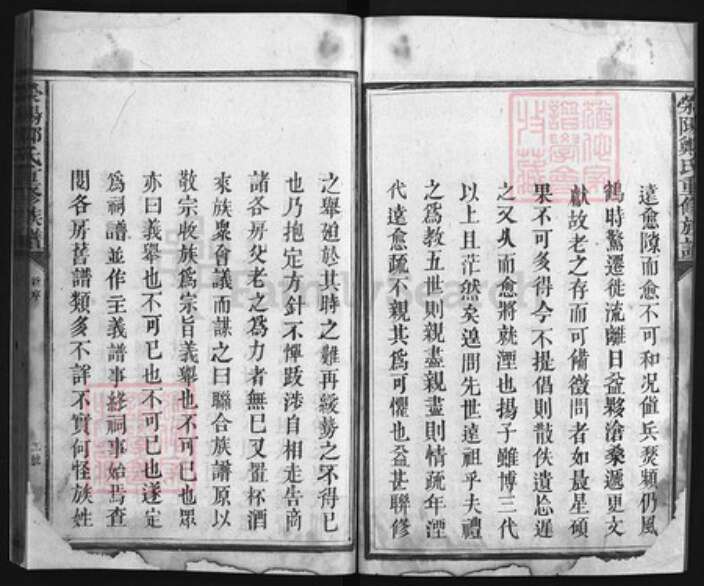 遠愈隙而愈不可和况值兵燹類仍風
鶴時驚遷徙流離日益夥滄桑遞更文
獻故老之存而可備徵問者如晨星碩
果不可多得今不提倡則散佚遺忘遲
之又久而愈將就湮也揚子雖博三代
以上且茫然矣遑問先世遠祖乎夫禮
之為教五世則親盡親盡則情疏年湮
代遠愈疏不親其為可懼也益甚聯修
之舉廹於其時之難再緩勢之不得已
也乃抱定方針不憚跋涉自相走告商
諸各房父老之為力者無已又置杯酒
來族衆會議而謀之曰聯合族譜原以
敬宗收族為宗旨義舉也不可已也眾
亦曰義舉也不可已也不可已也遂定
為祠譜並作主義譜事終祠事始焉查
閱各房舊譜類多不詳不實何怪族姓
滎陽鄭氏重修族譜
滎陽鄭氏重修族譜
FamilySearch